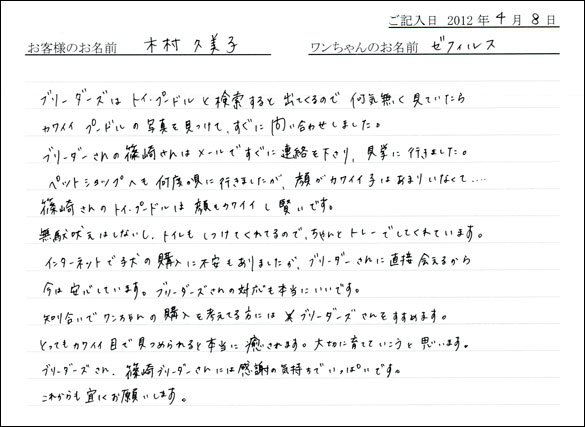 ご記入日 2012 年 4 月 8 日
お客様のお名前 木村 久美子 ワンちゃんのお名前 ゼフィルス
ブリーダーズはトイ・プードルと検索すると出てくるので何気無く見ていたら
カワイイ プードルの写真を見つけて、すぐに問い合わせしました。
ブリーダーさんの篠崎さんはメールですぐに連絡を下さり、見学に行きました。
ペットショップへも何度か見に行きましたが、顔がカワイイ子はあまりいなくて....
篠崎さんのトイ・プードルは顔もカワイイし賢いです。
無駄吠えはしないし、トイレもしつけてくれてるので、ちゃんとトレーでしてくれています。
インターネットで子犬の購入に不安もありましたが、ブリーダーさんに直接会えるから
今は安心しています。ブリーダーズさんの対応も本当にいいです。
知り合いでワンちゃんの購入を考えてる方には ブリーダーズさんをすすめます。
とってもカワイイ目で見つめられると本当に癒されます。大切に育てていこうと思います。
ブリーダーズさん、篠崎ブリーダーさんには感謝の気持ちでいっぱいです。
これからも宜しくお願いします。